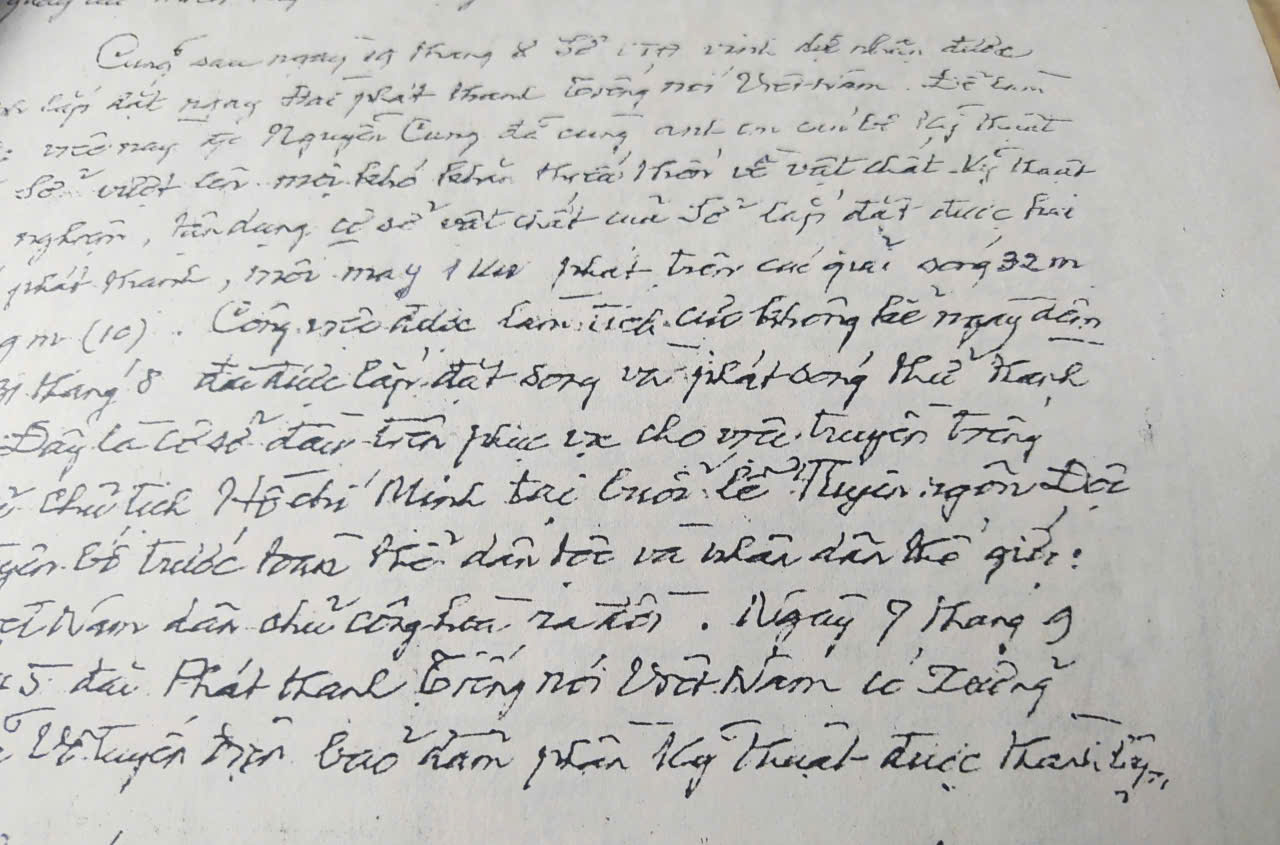 Cũng sau ngày 19 tháng 8 Sở VTĐ vinh dự nhận được
lắp đặt ngay Đài phát thanh Tiếng nói Việt Nam. Để làm
việc này đ/c Nguyễn Cung đã cùng anh em cán bộ kỹ thuật
Sở vượt lên mọi khó khăn thiếu thốn về vật chất kỹ thuật
nghiệm, tận dụng cơ sở vật chất của Sở lắp đặt được hai
phát thanh, mỗi máy 1 KW phát trên các giải sóng 32 m
m (10). Công việc được làm tích cực không kể ngày đêm
31 tháng 8 đài được lắp đặt song và phát sóng thử thành
Đây là cơ sở đầu tiên phục vụ cho việc truyền tiếng
chủ tịch Hồ Chí Minh tại buổi lễ Tuyên ngôn Độc
bố trước toàn thể dân tộc và nhân dân thế giới:
Nam dân chủ cộng hòa ra đời. Ngày 7 tháng 9
5 đài Phát thanh Tiếng nói Việt Nam có Xưởng
Vô tuyến điện bảo đảm phần kỹ thuật được thành lập,